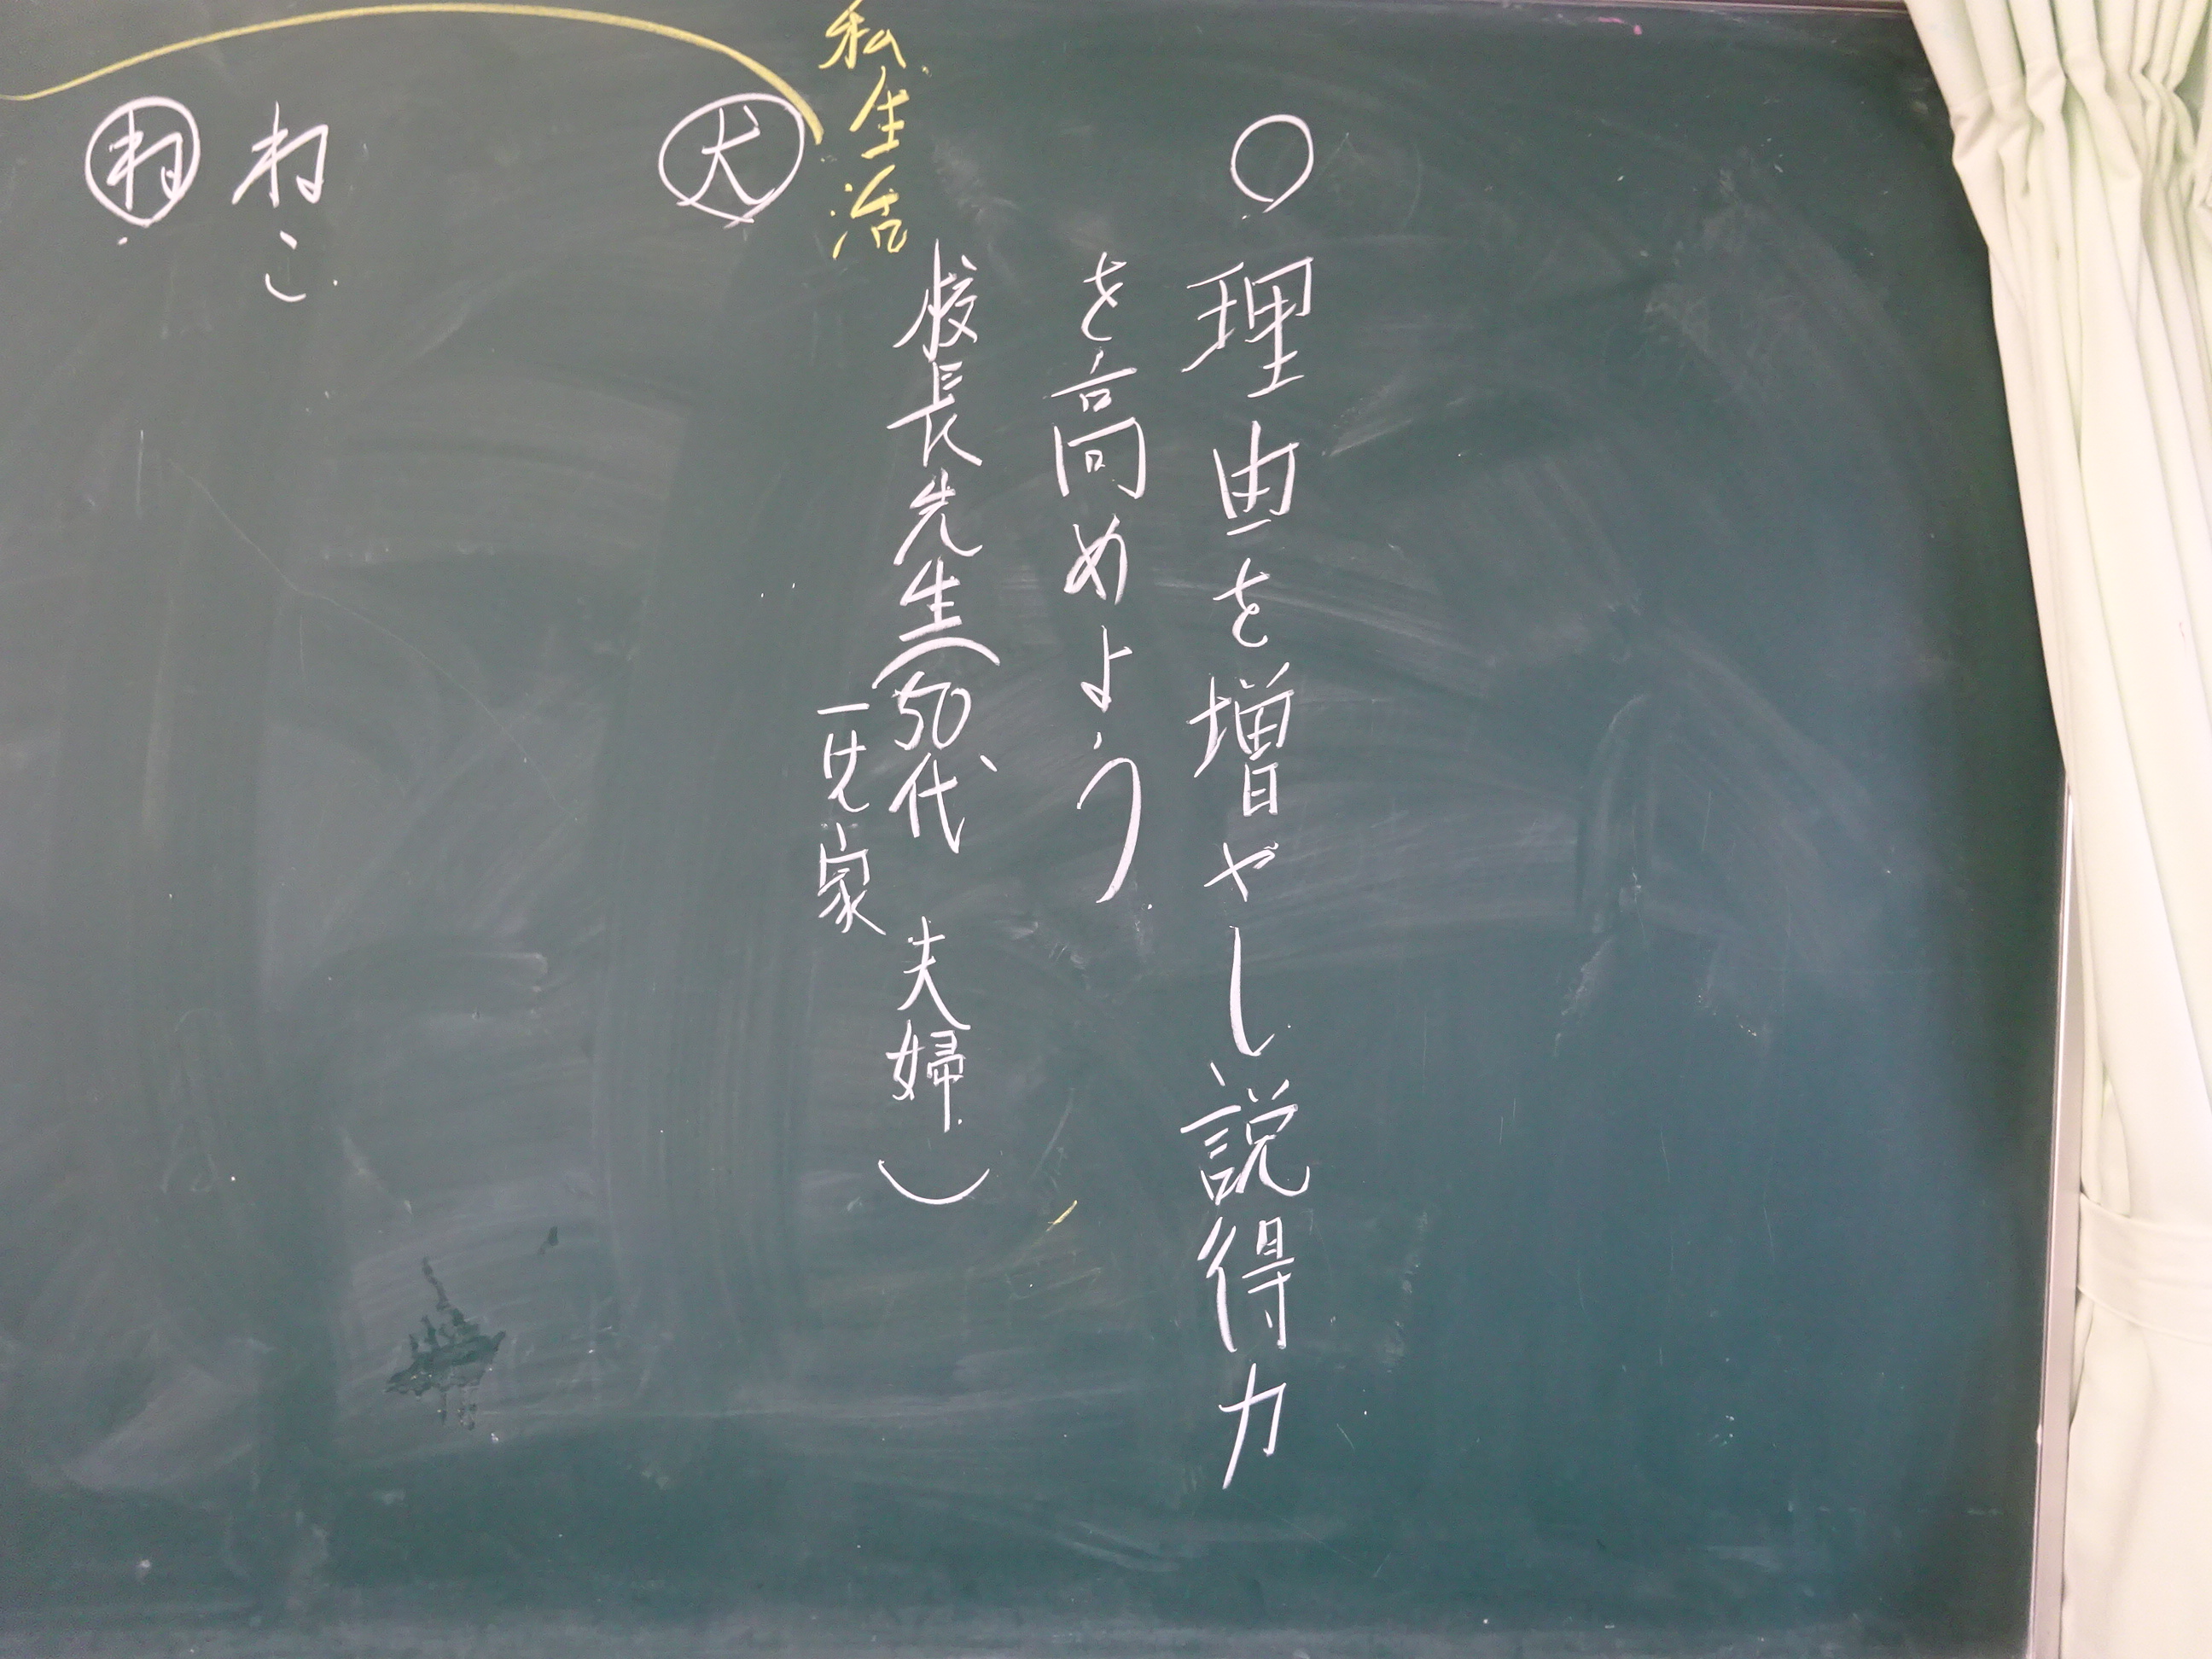 ○ 理由を増やし説得力
を高めよう
校長先生(50代、夫婦)
一けん家
私生活
犬
ねこ
ね